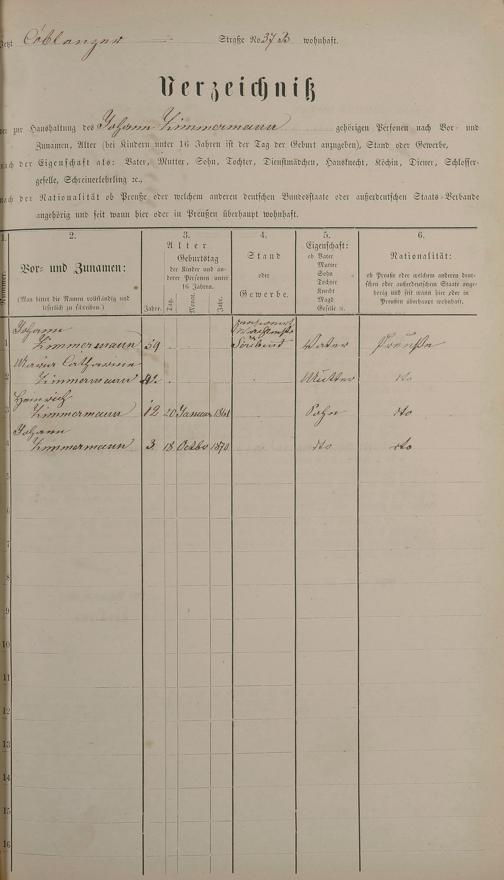 Coblenzer Straße No 37 B wohnhaft.
Verzeichniß
der zur Haushaltung des Johann Zimmermann gehörigen Personen nach Vor- und
Zunamen, Alter (bei Kindern unter 16 Jahren ist der Tag der Geburt anzugeben), Stand oder Gewerbe,
nach der Eigenschaft als: Vater, Mutter, Sohn, Tochter, Dienstmädchen, Hausknecht, Köchin, Diener, Schlosser-
geselle, Schreinerlehrling ꝛc.,
nach der Nationalität ob Preuße oder welchem anderen deutschen Bundesstaate oder außerdeutschen Staats-Verbande
angehörig und seit wann hier oder in Preußen überhaupt wohnhaft.
1. 2. 3. 4. 5. 6.
Nummer.
Vor- und Zunamen:
(Man bittet die Namen vollständig und
leserlich zu schreiben.)
Alter
Geburtstag
der Kinder und an-
derer Personen unter
16 Jahren.
Jahre. Tag. Monat. Jahr.
Stand
oder
Gewerbe.
Eigenschaft:
ob Vater
Mutter
Sohn
Tochter
Knecht
Magd
Geselle ꝛc.
Nationalität:
ob Preuße oder welchem andern deut-
schen oder außerdeutschen Staate ange-
hörig und seit wann hier oder in
Preußen überhaupt wohnhaft.
Johann
1 Zimmermann 54 Vater Preuße
Maria Catharina
2 Zimmermann Mutter do
Heinrich
3 Zimmermann 12 20 Januar 1861 Sohn do
Johann
4 Zimmermann 3 18 Octbr 1870 do do
5
6
7
8
9
10
11
12
13
14
15
16